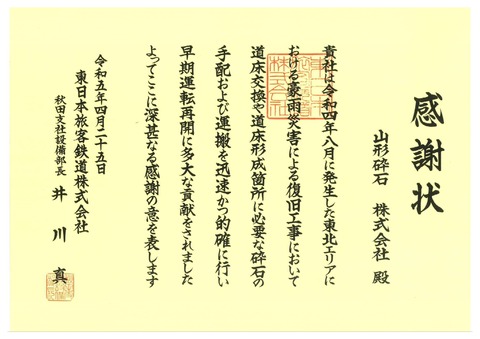 感謝状
山形砕石　株式会社　殿
貴社は令和四年八月に発生した東北エリアに
おける豪雨災害による復旧工事において
道床交換や道床形成箇所に必要な砕石の
手配および運搬を迅速かつ的確に行い
早期運転再開に多大な貢献をされました
よってここに深甚なる感謝の意を表します
令和五年四月二十五日
東日本旅客鉄道株式会社
秋田支社設備部長　井川　真